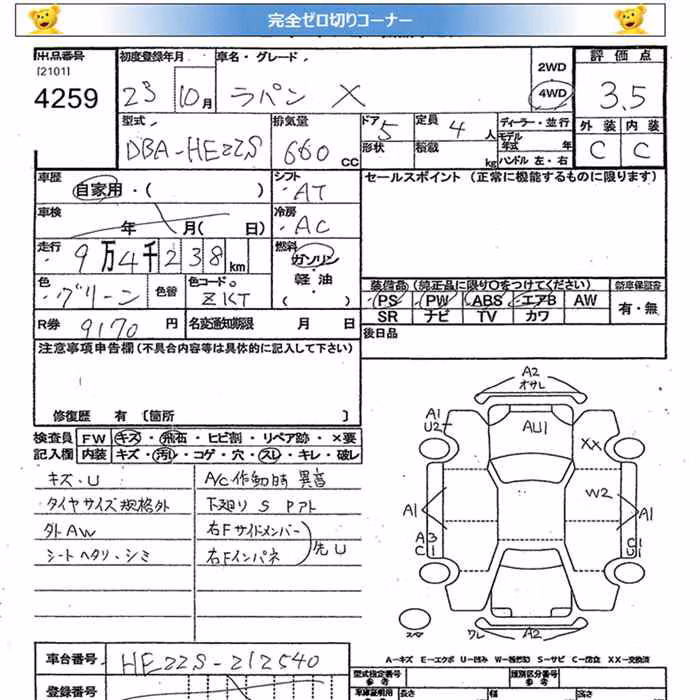 完全ゼロ切りコーナー
出品番号 初度登録年月 車名・グレード 2WD 評価点
[2101]
4259 23 10月 ラパン X 4WD 3.5
型式 排気量 ドア 定員 ディーラー・並行 外装 内装
DBA-HE22S 660cc 5 4人 モデル年式 年 C C
形状 積載 kg ハンドル 左・右
車歴 自家用・( ) シフト AT セールスポイント (正常に機能するものに限ります)
車検 年 月( 日) 冷房 AC
走行 9万4千238km 燃料 ガソリン
軽油
( )
色 グリーン 色替 色コード ZKT 装備品(純正品に限り○をつけてください) 新車保証書
PS PW ABS エアB AW 有・無
SR ナビ TV カワ
R券 9170円 名変通知期限 月 日 後日品
注意事項申告欄(不具合内容等は具体的に記入して下さい)
修復歴 有 [箇所 ]
検査員 FW キズ・飛石・ヒビ割・リペア跡・×要
記入欄 内装 キズ・汚れ・コゲ・穴・スレ・キレ・破レ
キズ、U A/C作動時 異音
タイヤサイズ規格外 下廻り S Pアト
外AW 右Fサイドメンバー
シートヘタリ、シミ 右Fインパネ 先U
A2
オサレ
A1
U2
AU1
XX
W2
A1
A1
A3
C1
C1
U1
スペア
ワレ
A2
A-キズ E-エクボ U-凹み W-補修跡 S-サビ C-腐食 XX-交換済
車台番号 HE22S-212540 型式指定番号 類別区分番号
参考 参考
登録番号 長さ 幅 高さ